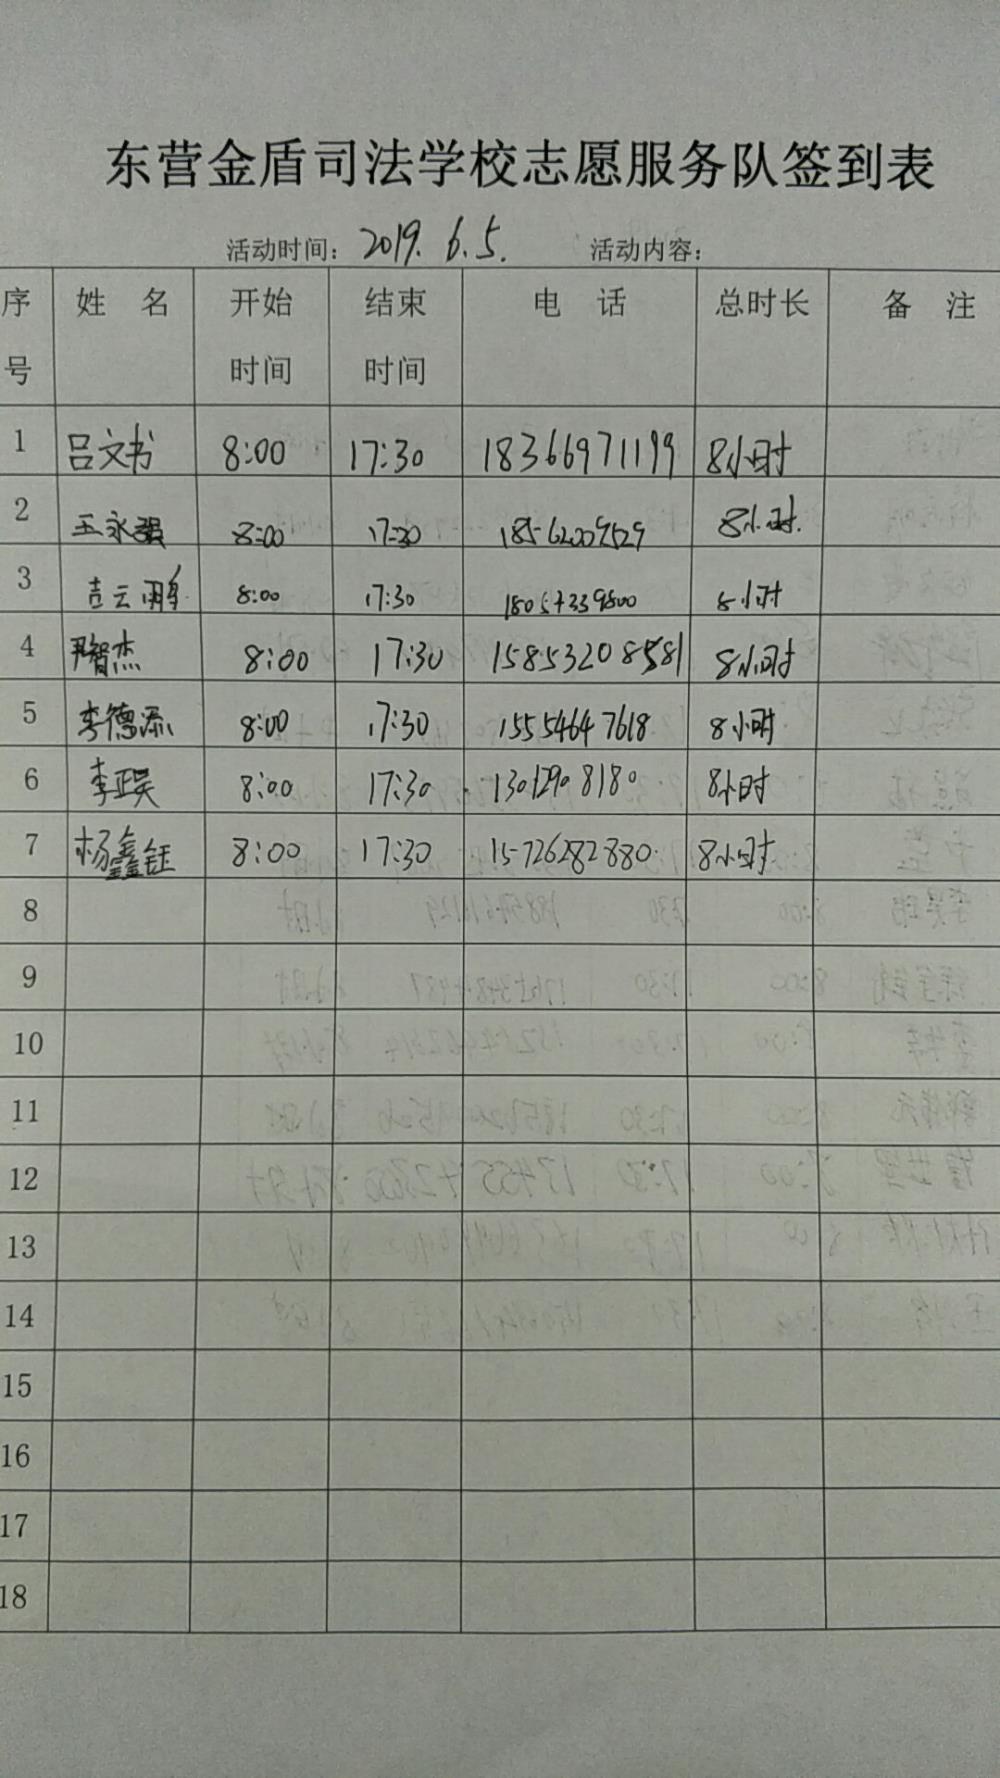 东营金盾司法学校志愿服务队签到表
活动时间：2019.6.5. 活动内容：
序号 姓名 开始时间 结束时间 电话 总时长 备注
1 吕文书 8:00 17:30 18366971199 8小时
2 王永强 8:00 17:30 18562009529 8小时.
3 吉云鹏 8:00 17:30 8小时
4 智杰 8:00 17:30 15853208581 8小时
5 李德添 8:00 17:30 15554647618 8小时
6 李正昊 8:00 17:30 13012908180 8小时
7 杨鑫钰 8:00 17:30 15726282880 8小时
8
9
10
11
12
13
14
15
16
17
18